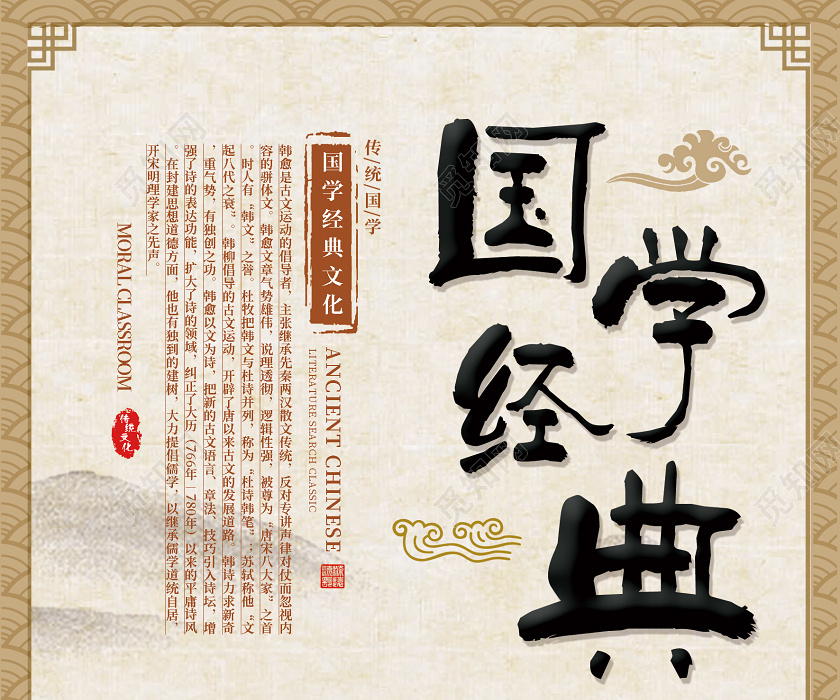 国学经典
传/统/国/学
国学经典文化
ANCIENT CHINESE
LITERATURE SEARCH CLASSIC
韩愈是古文运动的倡导者，主张继承先秦两汉散文传统，反对专讲声律对仗而忽视内
容的骈体文。韩愈文章气势雄伟，说理透彻，逻辑性强，被尊为“唐宋八大家”之首
。时人有“韩文”之誉。杜牧把韩文与杜诗并列，称为“杜诗韩笔”；苏轼称他“文
起八代之衰”。韩柳倡导的古文运动，开辟了唐以来古文的发展道路。韩诗力求新奇
，重气势，有独创之功。韩愈以文为诗，把新的古文语言、章法、技巧引入诗坛，增
强了诗的表达功能，扩大了诗的领域，纠正了大历（766年—780年）以来的平庸诗风
。在封建思想道德方面，他也有独到的建树，大力提倡儒学，以继承儒学道统自居，
开宋明理学家之先声。
MORAL CLASSROOM
传统文化
觅知网